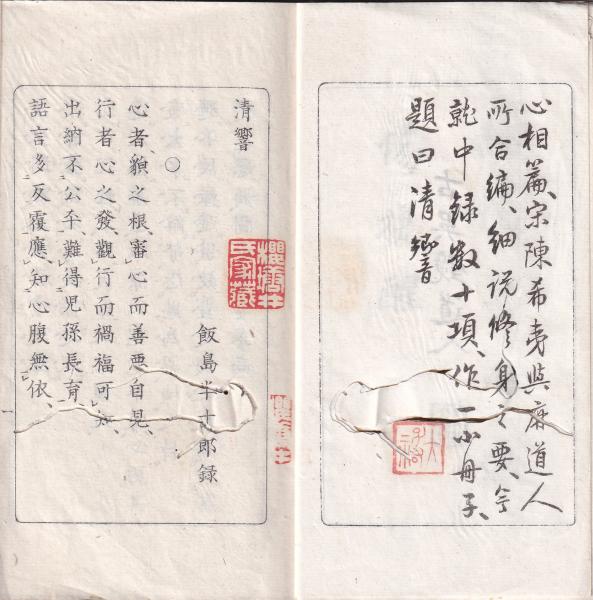 心相篇、宋陳希夷與麻道人
所合編、細説修身之要、今
就中録数十項、作一小冊子、
題曰清響
清響
飯島半十郎録
○
心者貌之根、審心而善悪自見、
行者心之發、觀行而禍福可知、
出納不公平、難得児孫長育、
語言多反覆、應知心腹無依、
櫻塘井
氏家藏